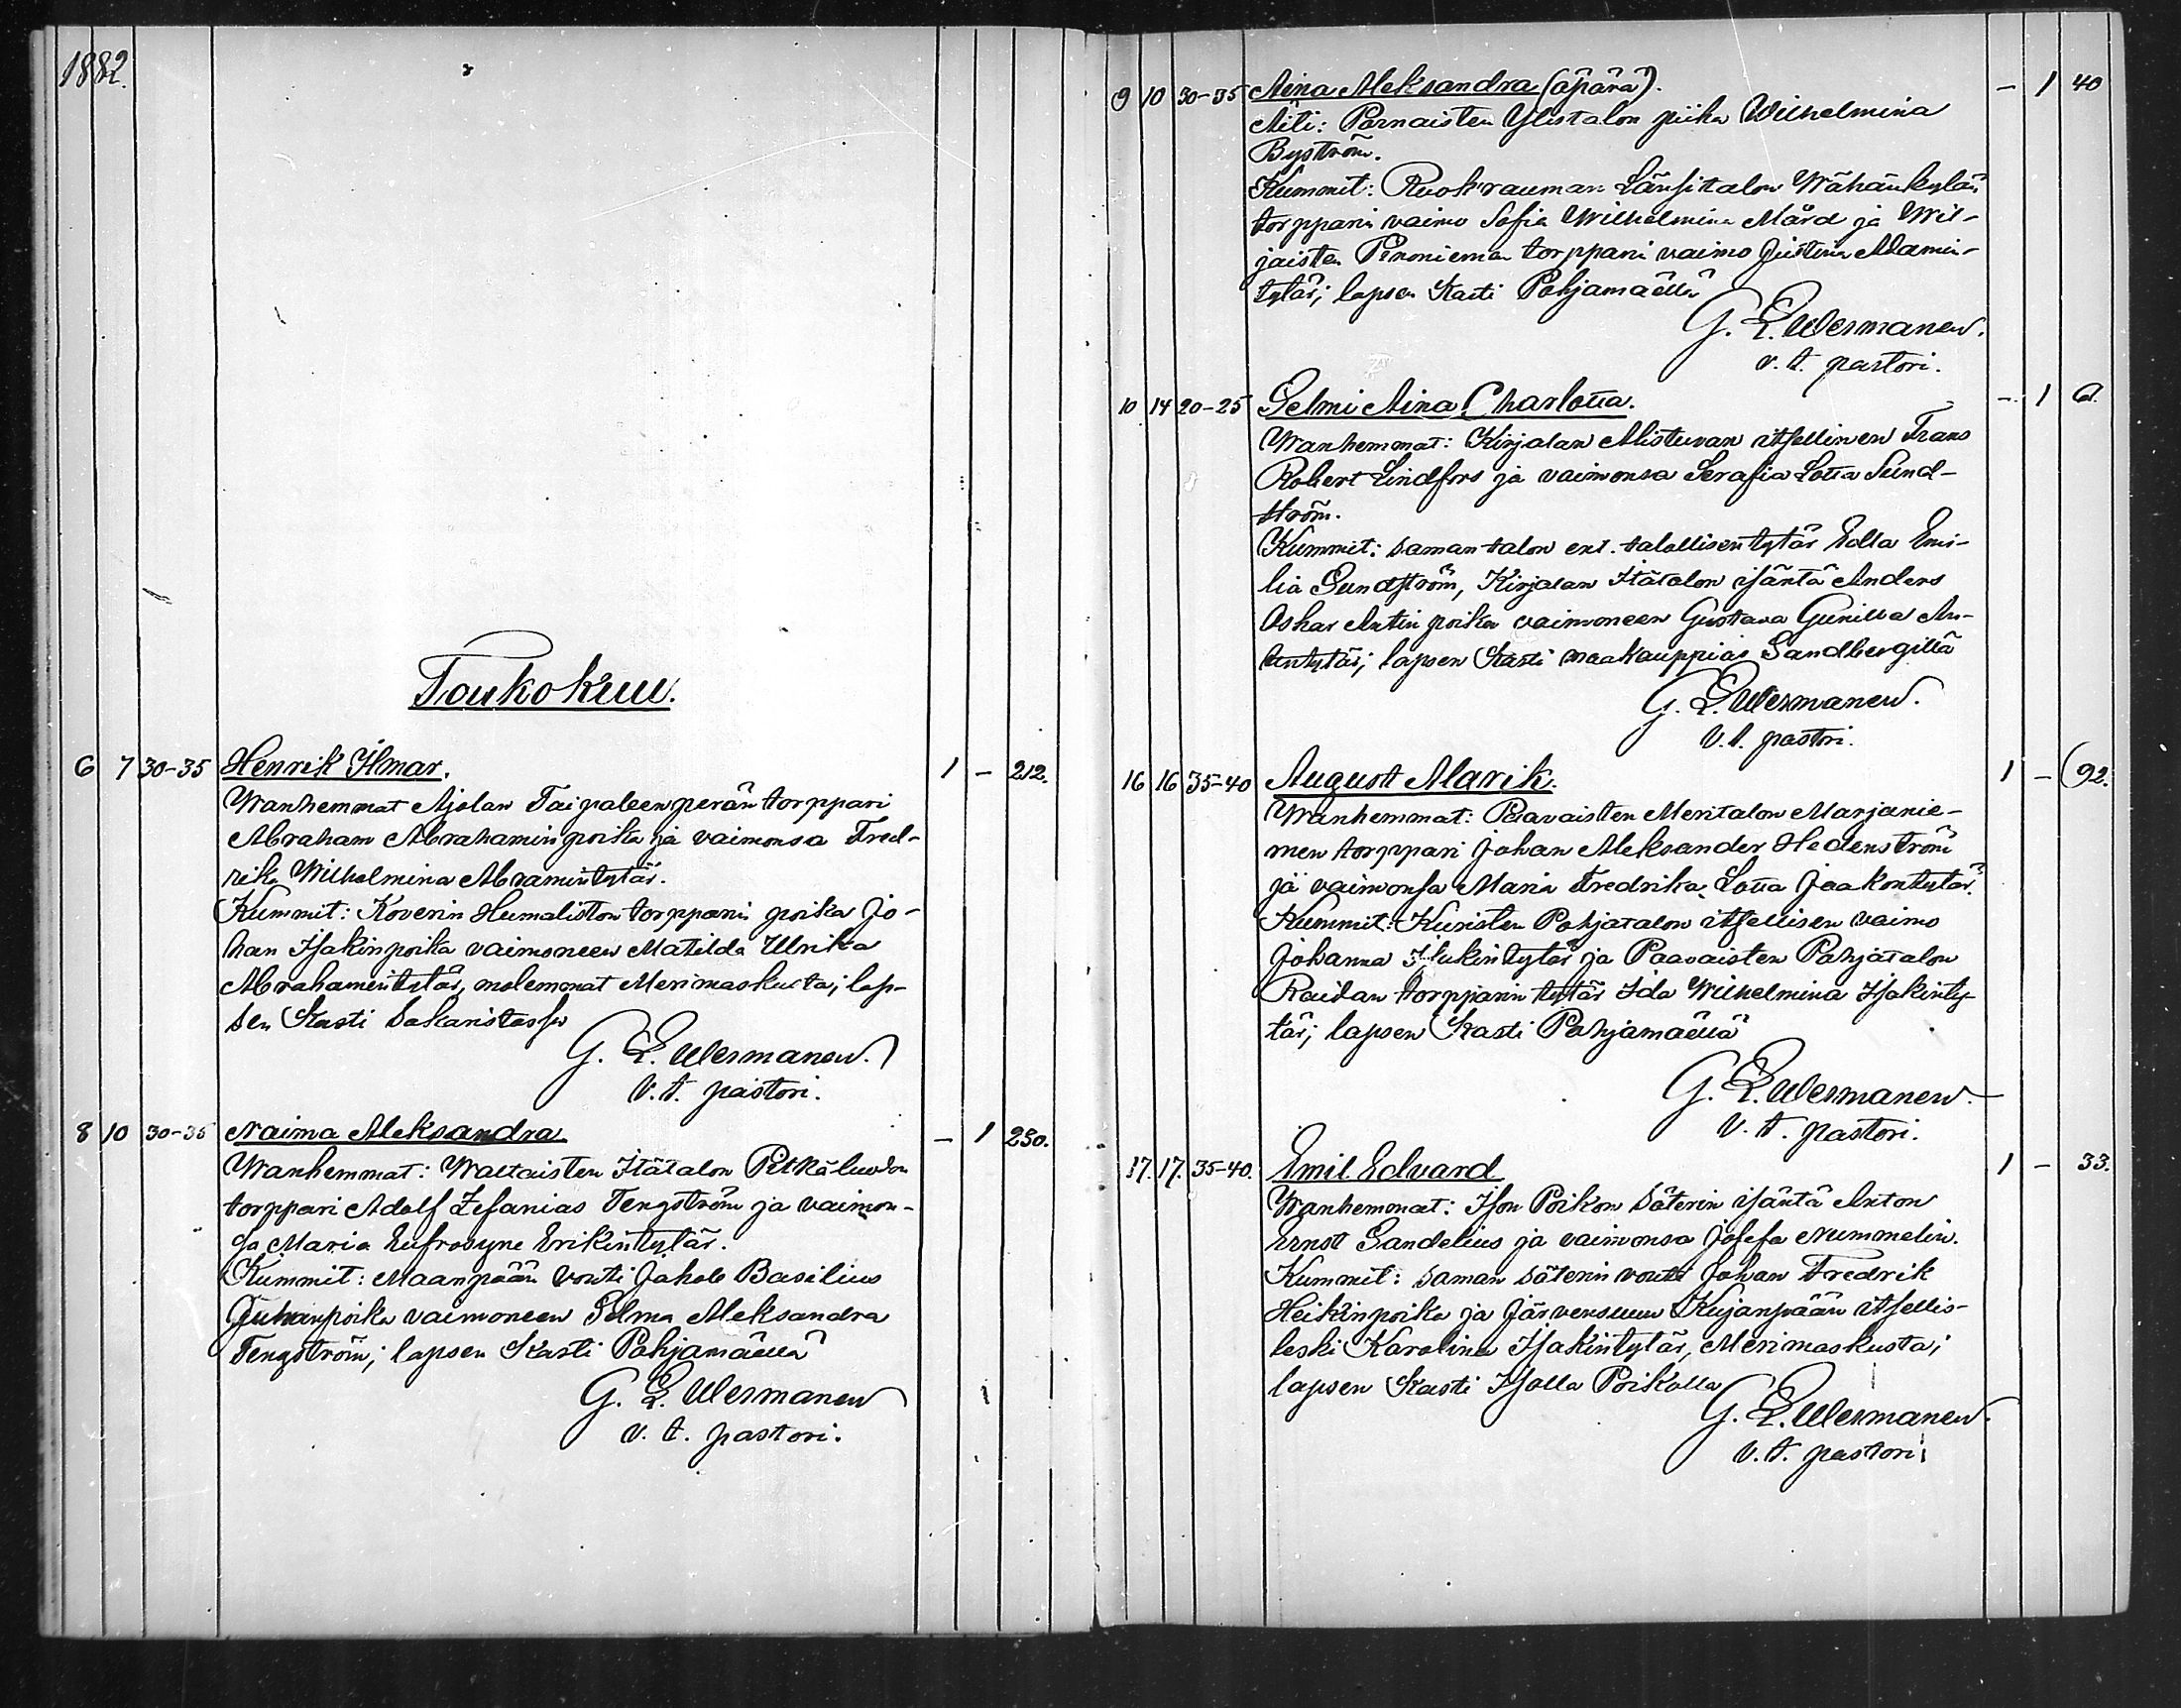 1882.
Toukokuu.
6 7 30-35 Henrik Ilmar. 1 - 212.
Wanhemmat Ajolan Taipaleenperän torppari
Abraham Abrahaminpoika ja vaimonsa Fred-
rika Wilhelmina Abramintytär.
Kummit: Koverin Humaliston torpparin poika Jo-
han Isakinpoika vaimoneen Matilda Ulrika
Abrahamintytär, molemmat Merimaskusta; lap-
sen kasti Sakaristossa
G. E. Wermanen.
v. t. pastori.
8 10 30-35 Naima Aleksandra - 1 230.
Wanhemmat: Waltaisten Itätalon Pitkäluodon
torppari Adolf Zefanias Tengström ja vaimon-
sa Maria Eufrosyne Erikintytär.
Kummit: Maanpään vouti Jakob Basilius
Juhanpoika vaimoneen Selma Aleksandra
Tengström; lapsen kasti Pohjamäellä
G. E. Wermanen
v. t. pastori.
9 10 30-35 Aina Aleksandra (äpärä). - 1 40
Äiti: Parnaisten Ylistalon piika Wilhelmina
Byström.
Kummit: Ruokrauman Länsitalon Wähänkylän
torpparin vaimo Sofia Wilhelmina Mård ja Wil-
jaisten torpparin vaimo Justina Adamin-
tytär; lapsen kasti Pohjamäellä
G. E. Wermanen.
v. t. pastori.
10 14 20-25 Selmi Aina Charlotta. - 1 6.
Wanhemmat: Kirjalan Alistuvan itsellinen Frans
Robert Lindfors ja vaimonsa Serafia Lotta Sund-
ström.
Kummit: saman talon ent. talollisen tytär Edla Emi-
lia Sundström, Kirjalan Itätalon isäntä Anders
Oskar Antinpoika vaimoneen Gustava Gunilla An-
tintytär; lapsen kasti maakauppias Sandbergillä
G. E. Wermanen.
v. t. pastori.
16 16 35-40 August Alarik. 1 - 92.
Wanhemmat: Paavaisten Meritalon Marjanie-
men torppari Johan Aleksander Hedenström
ja vaimonsa Maria Fredrika Lotta Jaakontytär.
Kummit: Kuristen Pohjatalon itsellisen vaimo
Johanna Isakintytär ja Paavaisten Pohjatalon
Raidan torpparin tytär Ida Wilhelmina Isakinty-
tär; lapsen kasti Pohjamäellä
G. E. Wermanen.
v. t. pastori.
17. 17. 35-40. Emil Edvard 1 - 33.
Wanhemmat: Ison Poikon Säterin isäntä Anton
Ernst Sandelius ja vaimonsa Josefa Nummelin.
Kummit: saman säterin vouti Johan Fredrik
Heikinpoika ja Järvensuun Kujanpään itsellis-
leski Karolina Isakintytär, Merimaskusta;
lapsen kasti Isolla Poikolla
G. E. Wermanen.
v. t. pastori.